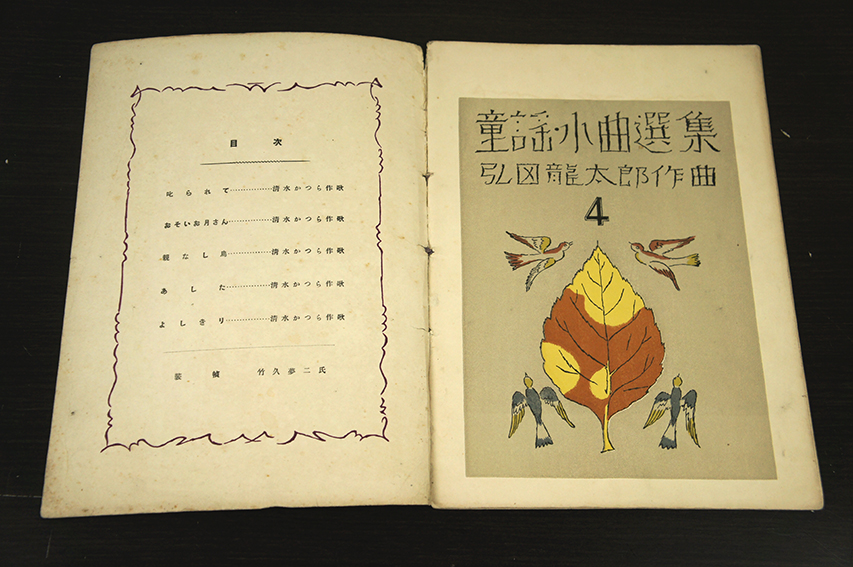 目次
叱られて………………清水かつら作歌
おそいお月さん………………清水かつら作歌
親なし鳥………………清水かつら作歌
あした………………清水かつら作歌
よしきり………………清水かつら作歌
装幀 竹久夢二氏
童謡・小曲選集
弘田龍太郎作曲
4